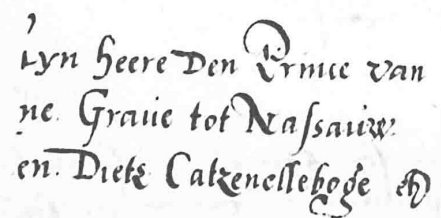 yn heere Den Prince van
ne. Graue tot Nassauw.
en. Dietz Catzenelleboge etc